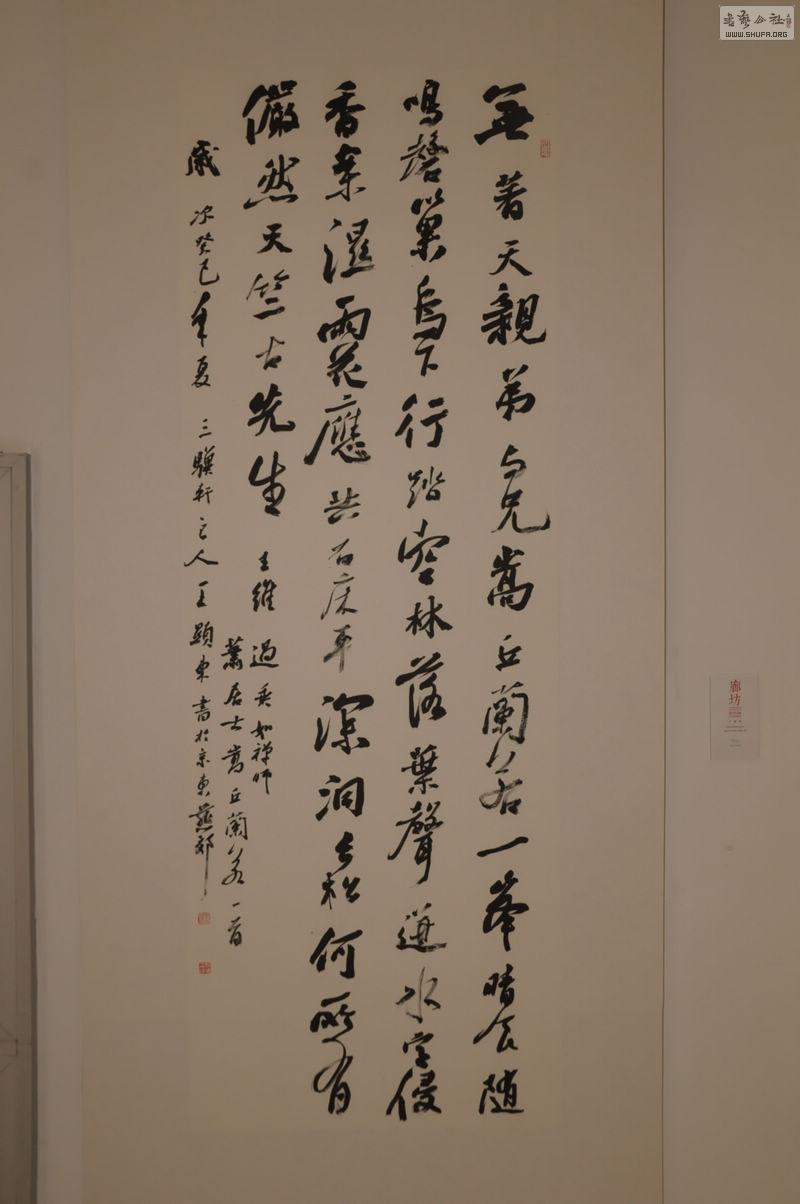 無著天親弟与兄嵩丘蘭若一峯晴食随
鳴磬巢烏下行踏空林落葉聲迸水定侵
香案濕雨花應共石床平深洞長松何所有
儼然天竺古先生
王維過乗如禅师
蕭居士嵩丘蘭若一首
歲次癸巳年夏三驥軒主人王顕東書於京東燕郊
廊坊
書藝公社
WWW.SHUFA.ORG